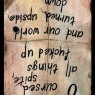 O cursed
spite
all things
fucked up
and our world
turned upside
down